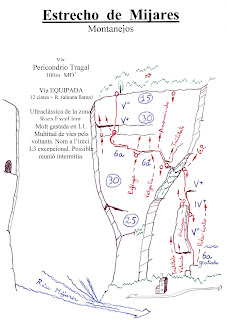 Estrecho de Mijares
Montanejos
Via
Pericondrio Tragal
100m MD
Via EQUIPADA
Ultraclàssica de la zona
Roca Excel·lent
Molt gastada en L1.
Multitud de vies pels
voltants. Nom a l'inici.
L3 excepcional. Possible
reunió intermitja.
15
V
30
V-
6a
6a
V+
30
IV
V+
25
6a
gastada
Rio Mijares